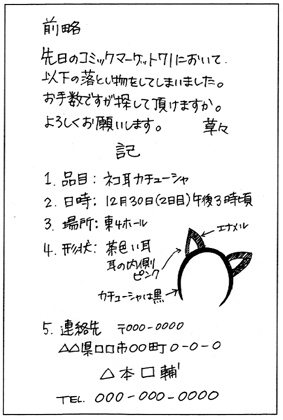 前略
先日のコミックマーケット71において、
以下の落とし物をしてしまいました。
お手数ですが探して頂けますか。
よろしくお願いします。 草々
記
1. 品目: ネコ耳カチューシャ
2. 日時: 12月30日(2日目)午後3時頃
3. 場所: 東4ホール
4. 形状: 茶色い耳
耳の内側
ピンク
エナメル
カチューシャは黒
5. 連絡先 〒000-0000
△△県□□市○○町0-0-0
△本□輔
TEL. 000-000-0000